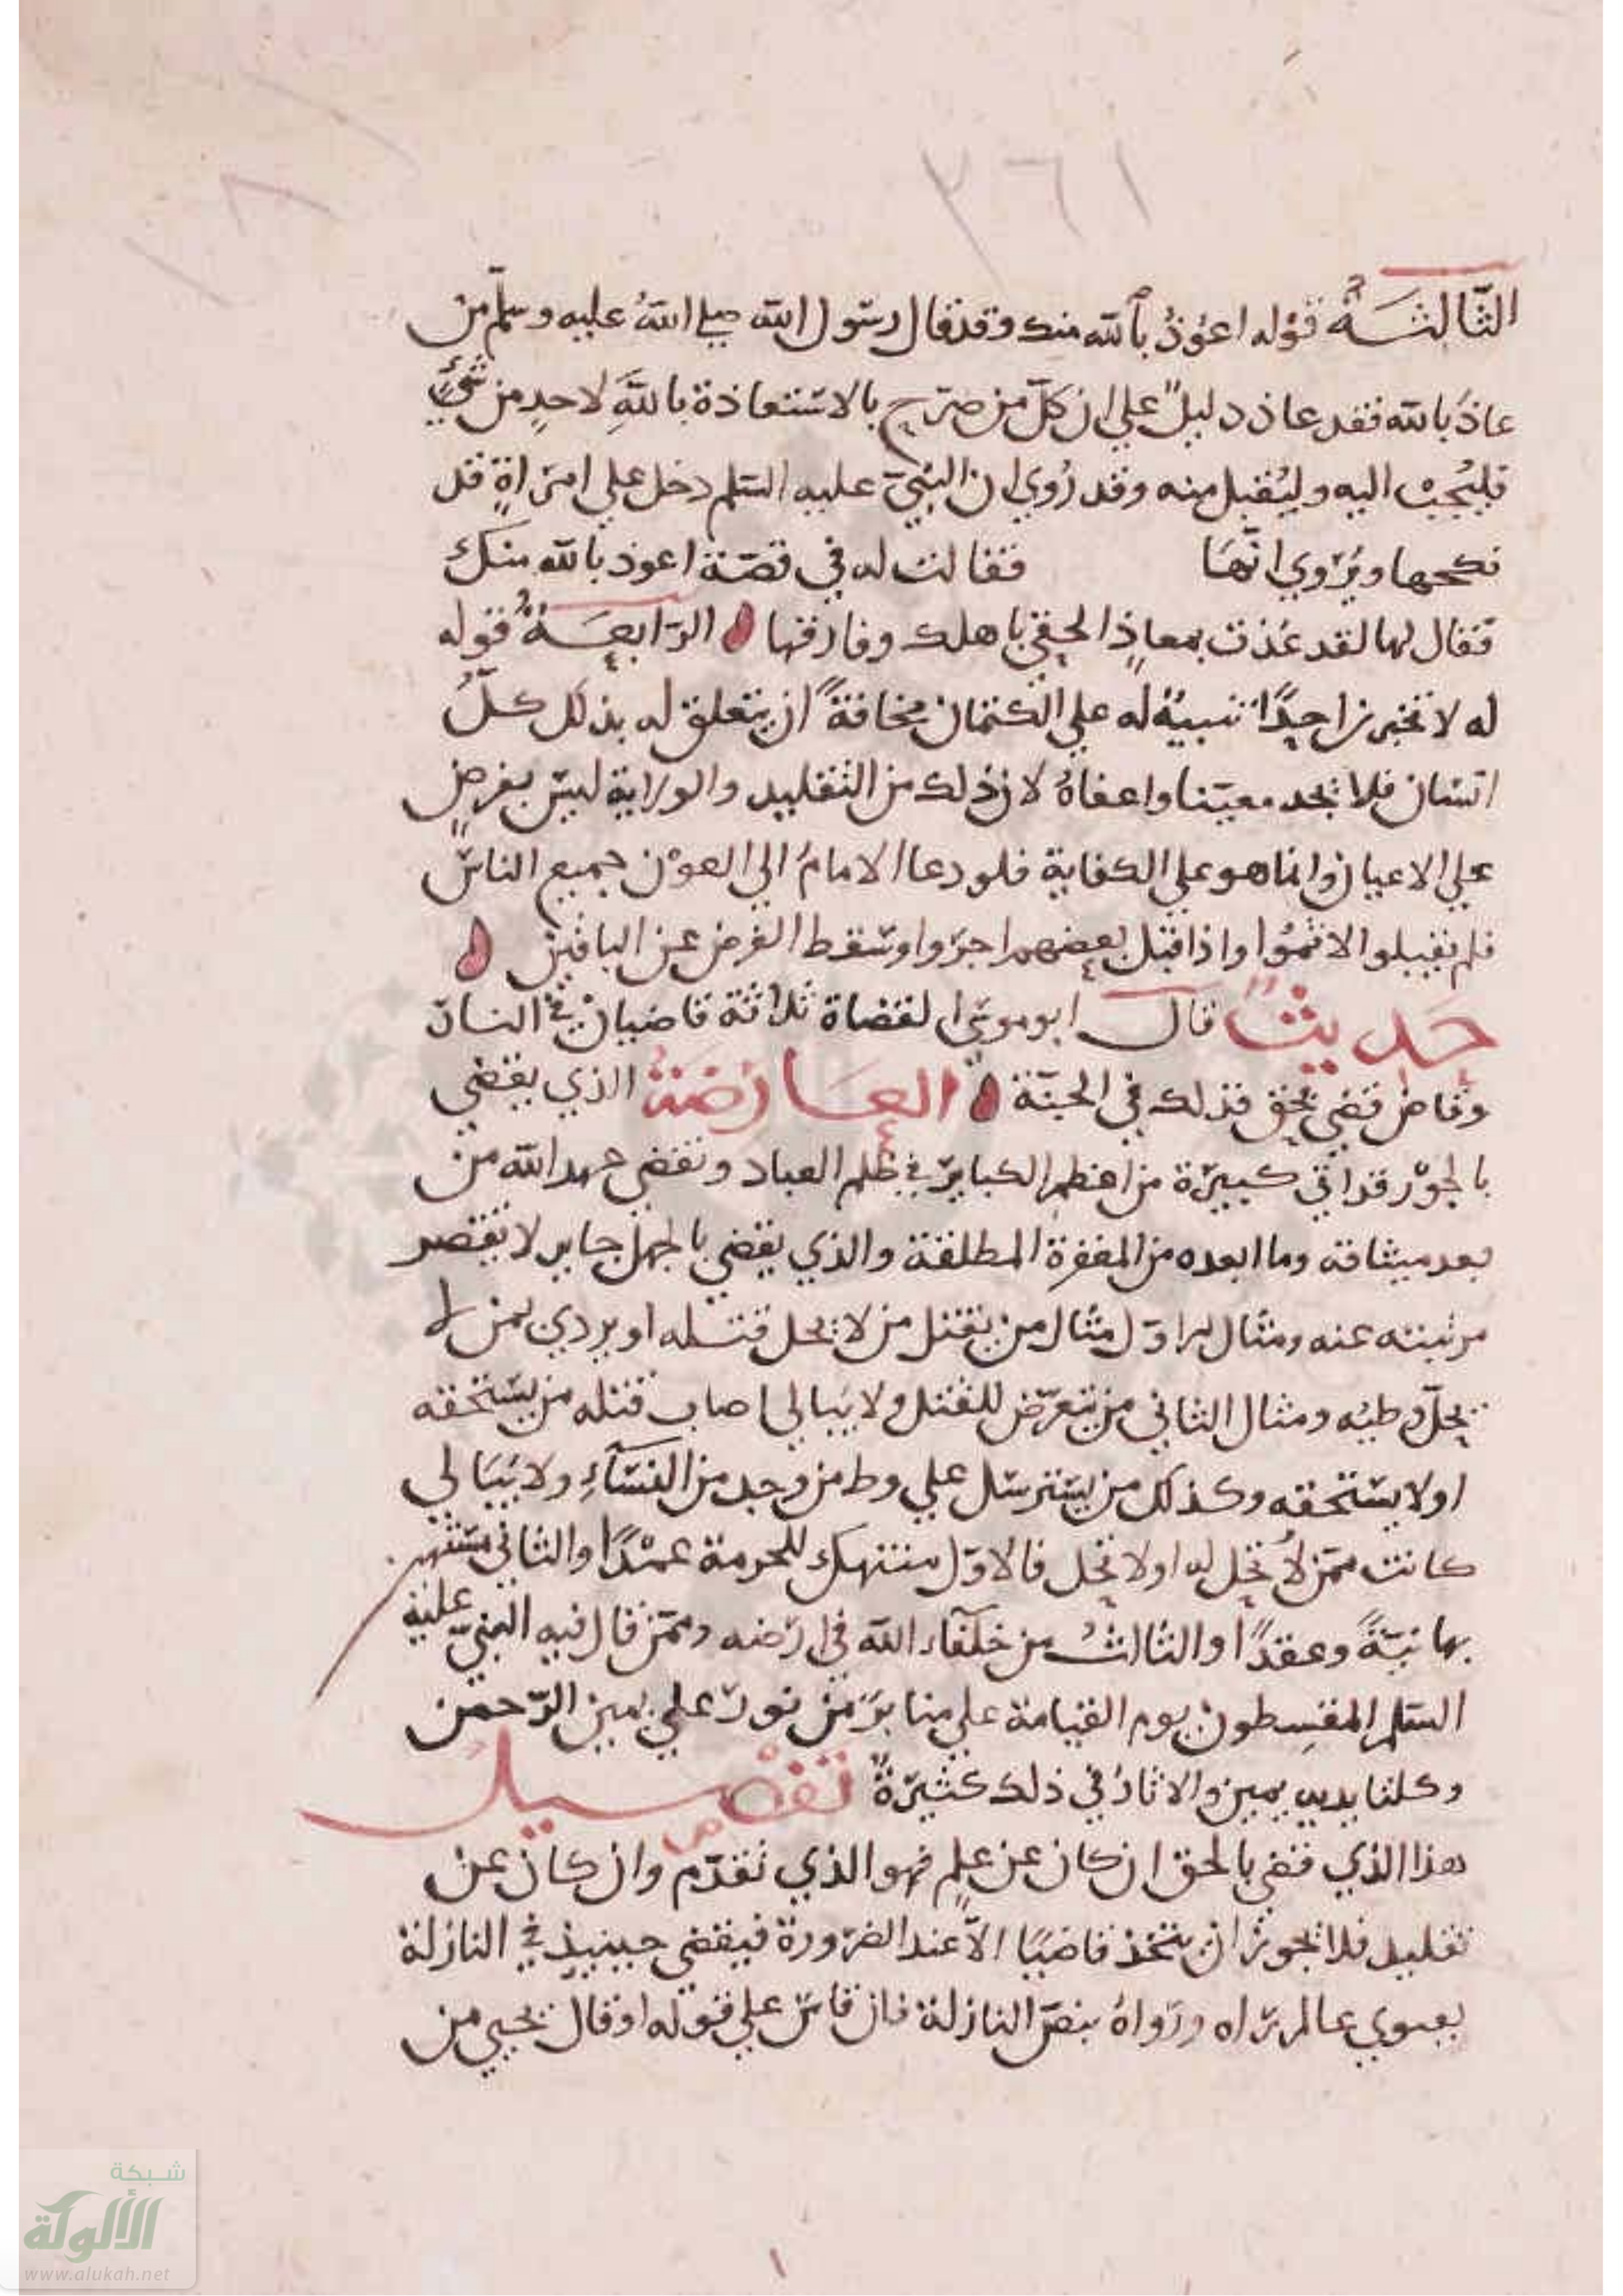 ١٦٢
الثَّالِثَةُ قوله اعوذُ بالله منك وقد قال رسول الله صلى الله عليه وسلم من
عاذَ بالله فقد عاذ دليلٌ على ان كلّ من صرّح بالاستعاذة باللهِ لاحدٍ من شيءٍ
فليُجبْ اليه وليُقبل منه وقد رُوي ان النبيّ عليه السلم دخل على امراةٍ قد
نكحها ويُروي انّها فقالت له في قصّة اعوذ بالله منك
فقال لها لقد عُذت بمعاذٍ الحقي باهلك وفارقها الرّابِعَةُ قوله
له لا تخبرن احدًا تنبيهٌ له على الكتمان مخافةً ان يتعلق له بذلك كلّ
انسان فلا يجد معينا واعفاهُ لان ذلك من التقليد والولاية ليس بفرضٍ
على الاعيان وانما هو على الكفاية فلو دعا الامامُ الى العون جميع الناس
فلم يقبلوا لاثمُوا واذا قبل بعضهم اجروا وسقط الفرض عن الباقين
حَديثٌ قال ابو موسى القضاة ثلاثة قاضيان في النار
وقاض قضى بحق فذلك في الجنّة العَارِضَةُ الذي يقضي
بالجوْر قد اتى كبيرة من اعظم الكباير في ظلم العباد ونقض عهد الله من
بعد ميثاقه وما ابعده من المغفرة المطلقة والذي يقضي بالجهل جاير لا تقصر
مرتبته عنه ومثال الاوّل مثال من يقتل من لا يحل قتله او يزدي بمن لا
يحلّ وطيه ومثال الثاني من يتعرّض للقتل ولا يبالي اصاب قتله من يستحقه
او لا يستحقه وكذلك من يسترسل على وطء من وجد من النسآءِ ولا يُبَالي
كانت ممّن تحل له او لا تحل فالاوّل منتهك للحرمة عمْدًا والثاني مستهتر
بها نيّةً وعقدًا والثالثُ من خلفآء الله في ارضه وممّن قال فيه النبيّ عليه
السلم المقسِطون يوم القيامة على منابرَ من نور على يمين الرّحمن
وكلتا يديه يمين والاثارُ في ذلك كثيرَةٌ تَفْصِيل
هذا الذي قضى بالحق ان كان عن علمٍ فهو الذي تقدّم وان كان عن
تقليد فلا يجوز ان يتخذ قاضيًا الاّ عند الضرورة فيقضي حينيذٍ في النازلة
بفتوى عالم رآه ورواهُ بنصّ النازلة فان قاس على قوله او قال يجيء من
شبكة
الألوكة
www.alukah.net